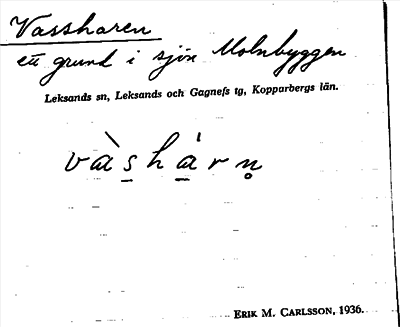 Vassharen
ett grund i sjön Molnbyggen
Leksands sn, Leksands och Gagnefs tg, Kopparbergs län.
và̱s̱há̱rn̥
ERIK M. CARLSSON, 1936.